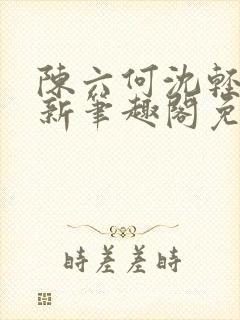 陳六何沈輕
新筆趣閣免
時差差時